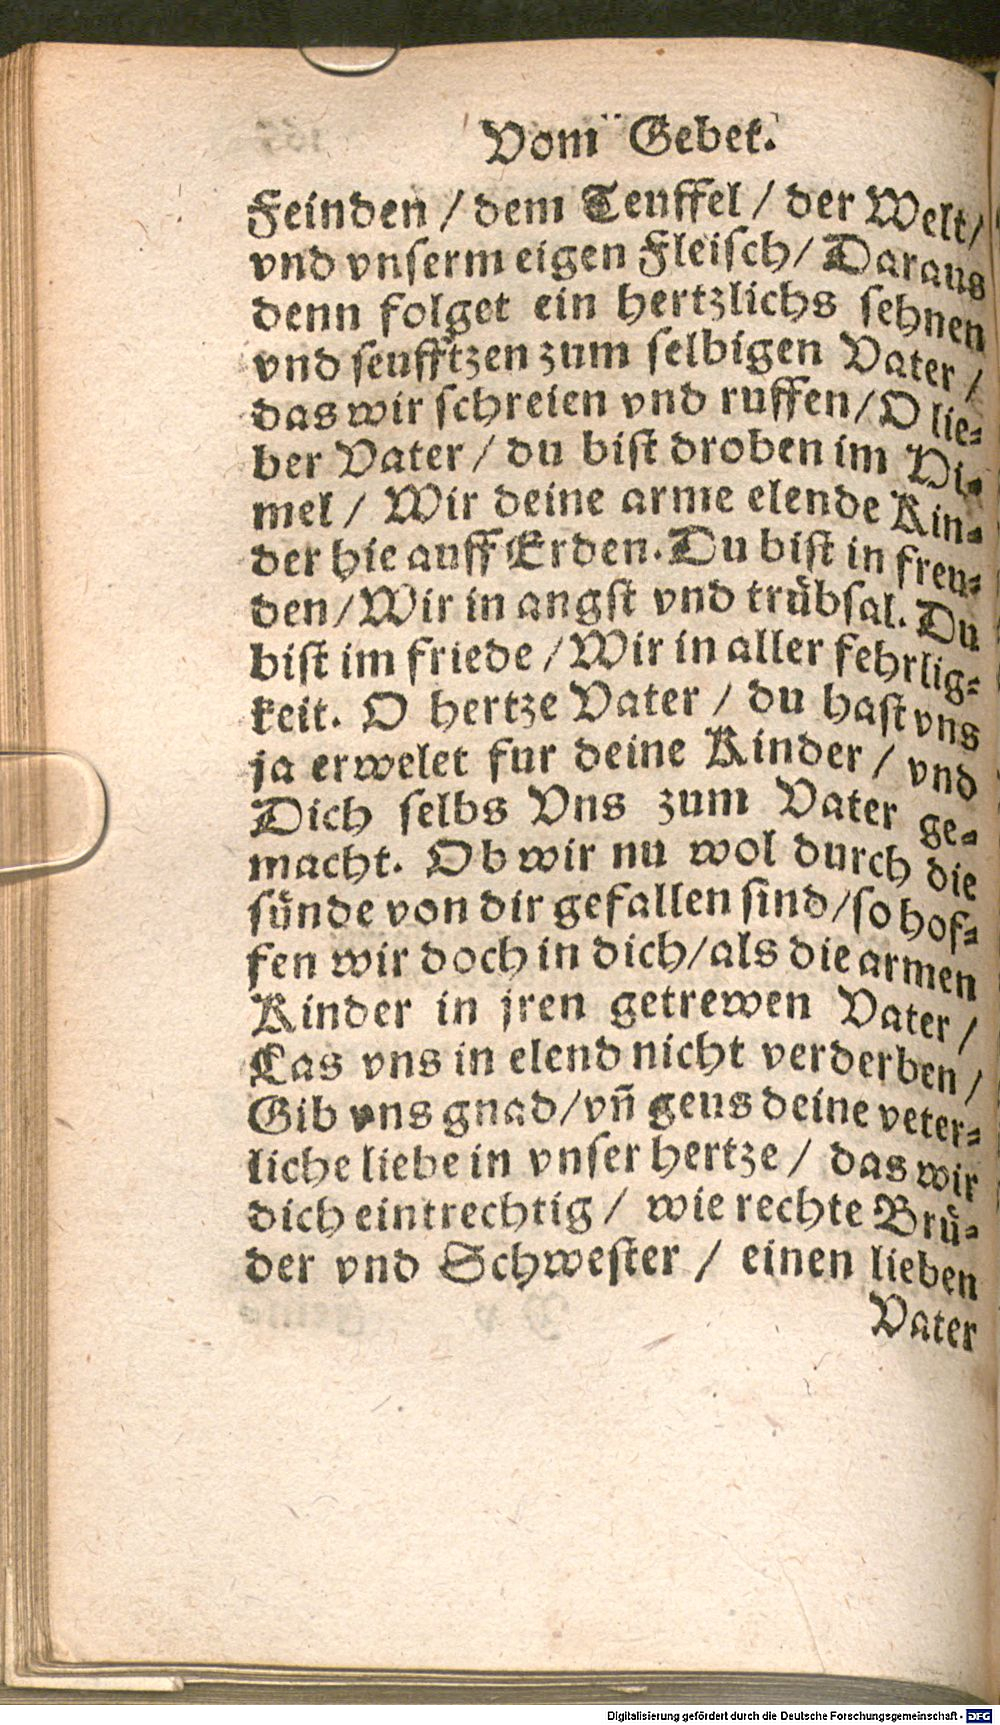 Vom Gebet.
Feinden / dem Teuffel / der Welt/
vnd vnserm eigen Fleisch/ Daraus
denn folget ein hertzlichs sehnen
vnd seufftzen zum selbigen Vater /
das wir schreien vnd ruffen/O lie-
ber Vater / du bist droben im Hi-
mel / Wir deine arme elende Kin-
der hie auff Erden. Du bist in freu-
den/Wir in angst vnd trübsal. Du
bist im friede /Wir in aller fehrlig-
keit. O hertze Vater / du hast vns
ja erwelet fur deine Kinder / vnd
Dich selbs Vns zum Vater ge-
macht. Ob wir nu wol durch die
sünde von dir gefallen sind/so hof-
fen wir doch in dich/als die armen
Kinder in jren getrewen Vater /
Las vns in elend nicht verderben /
Gib vns gnad/vñ geus deine veter-
liche liebe in vnser hertze / das wir
dich eintrechtig / wie rechte Brü-
der vnd Schwester / einen lieben
Vater
Digitalisierung gefördert durch die Deutsche Forschungsgemeinschaft - DFG